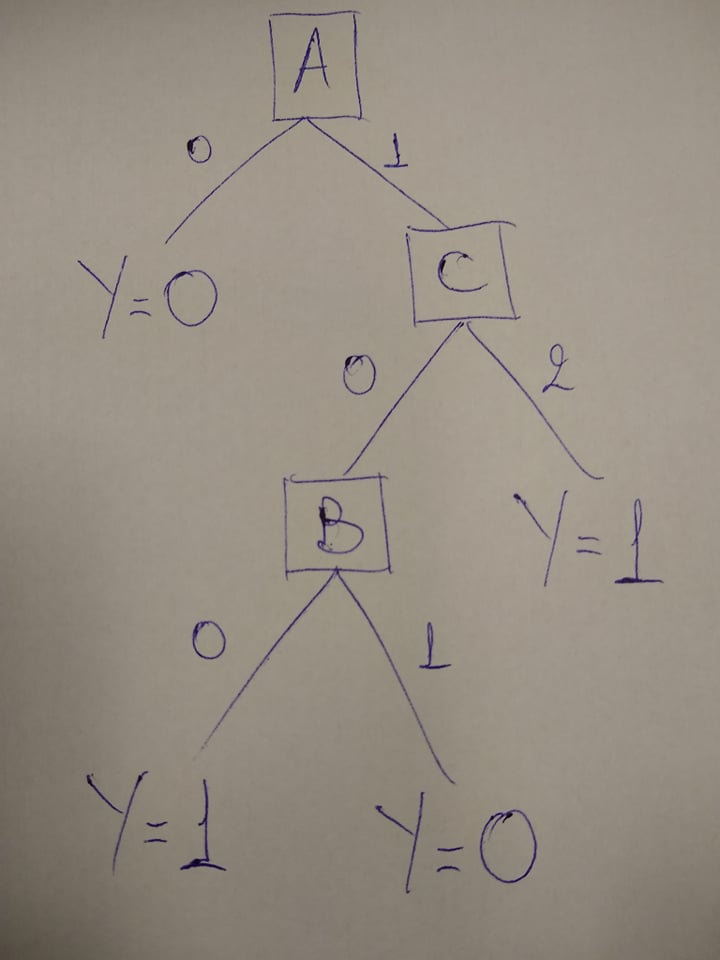 A
0 1
Y=0
C
0 2
B
Y=1
0 1
Y=1 Y=0